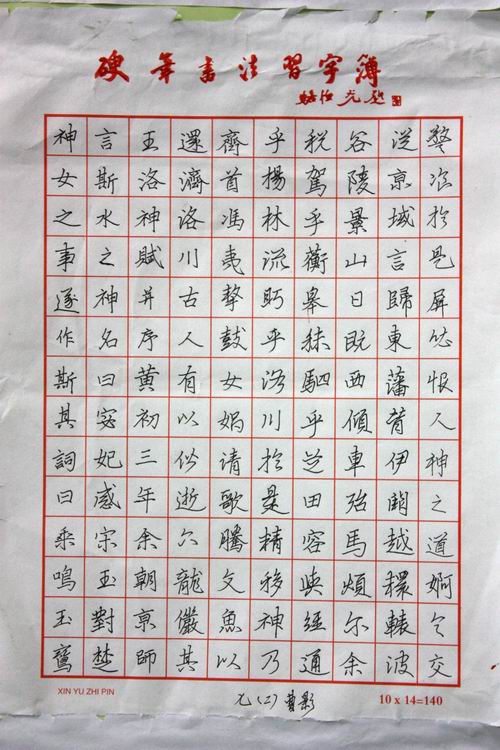 硬筆書法習字簿
神女之事遂作斯其詞曰乘鳴玉鸞
言斯水之神名曰宓妃感宋玉對楚
王洛神賦并序黄初三年余朝京師
還濟洛川古人有以似逝六龍儼其
齊首馮夷擊鼓女媧请歌騰文魚以
乎楊林流眄乎洛川於是精移神乃
税駕乎蘅皋秣駟乎芝田容與经通
谷陵景山日既西傾車殆馬煩尔余
從京域言歸東藩背伊闕越轘轅波
警於是屏恨人神之道婀令交
XIN YU ZHI PIN
10 x 14=140